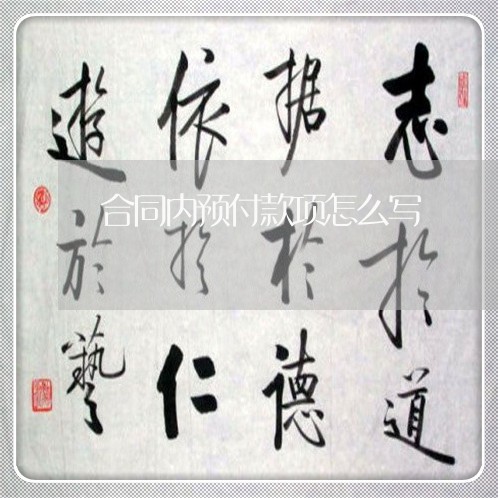 志於道
据於德
依於仁
遊於藝
合同内预付款项怎么写